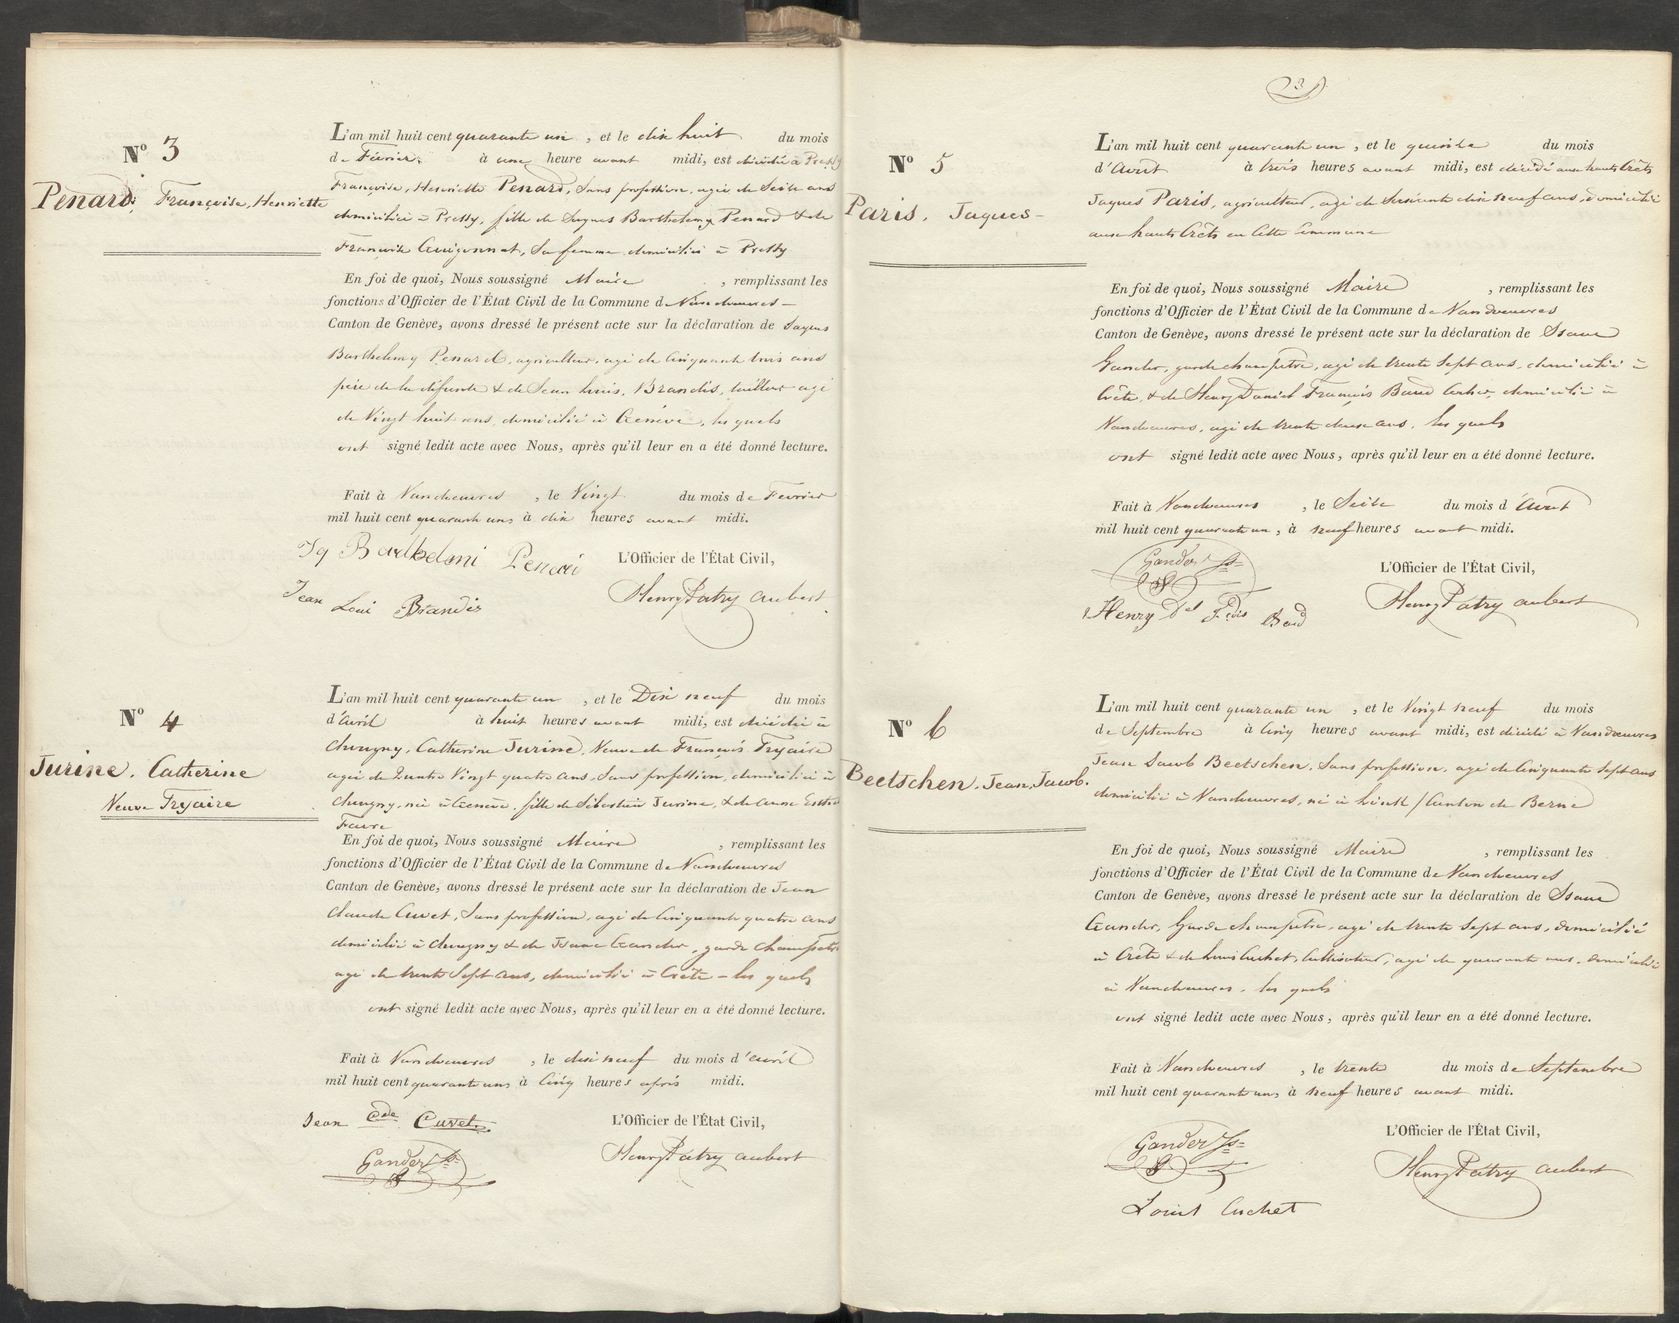 Nº 3
Penard, Françoise, Henriette
L'an mil huit cent quarante un, et le dix huit du mois
de Février, à une heure avant midi, est décédée à Pressy
Françoise, Henriette Penard, sans profession, agée de Seize ans
domiciliée à Pressy, fille de Jaques Barthelemy Penard & de
Françoise Guigonnat, sa femme domiciliés à Pressy
En foi de quoi, Nous soussigné Maire, remplissant les
fonctions d'Officier de l'État Civil de la Commune de Vandoeuvres
Canton de Genève, avons dressé le présent acte sur la déclaration de Jaques
Barthelemy Penard, agriculteur, agé de Cinquante trois ans
père de la défunte & de Jean Louis Brandis, tailleur agé
de Vingt huit ans, domicilié à Genève, les quels
ont signé ledit acte avec Nous, après qu'il leur en a été donné lecture.
Fait à Vandoeuvres, le Vingt du mois de Fevrier
mil huit cent quarante un, à dix heures avant midi.
L'Officier de l'État Civil,
Jq Barthelmi Penard
Jean Loui Brandis
Henry Patry aubert
Nº 4
Jurine, Catherine
Neuve Tryaire
L'an mil huit cent quarante un, et le Dix neuf du mois
d'avril à huit heures avant midi, est décédée à
Chougny, Catherine Jurine, Veuve de François Tryaire
agée de Quatre Vingt quatre ans, sans profession, domiciliée à
Chougny, née à Genève, fille de Sébastien Jurine, & de anne Esther
Favre
En foi de quoi, Nous soussigné Maire, remplissant les
fonctions d'Officier de l'État Civil de la Commune de Vandoeuvres
Canton de Genève, avons dressé le présent acte sur la déclaration de Jean
Claude Cuvet, sans profession, agé de Cinquante quatre ans
domicilié à Chougny & de Isaac Gander, garde Champêtre
agé de trente Sept ans, domicilié à Crête - les quels
ont signé ledit acte avec Nous, après qu'il leur en a été donné lecture.
Fait à Vandoeuvres, le dix neuf du mois d'avril
mil huit cent quarante un, à Cinq heures après midi.
L'Officier de l'État Civil,
Jean Cde Cuvet
Gander Is
Henry Patry aubert
Nº 5
Paris, Jaques
L'an mil huit cent quarante un, et le quinze du mois
d'Aout à trois heures avant midi, est décédé aux hauts Crêts
Jaques Paris, agriculteur, agé de Soixante dix neuf ans, domicilié
aux hauts Crêts en Cette Commune
En foi de quoi, Nous soussigné Maire, remplissant les
fonctions d'Officier de l'État Civil de la Commune de Vandoeuvres
Canton de Genève, avons dressé le présent acte sur la déclaration de Isaac
Gander, garde champêtre, agé de trente Sept ans, domicilié à
Crête, & de Henry Daniel François Baud domicilié à
Vandoeuvres, agé de trente deux ans, les quels
ont signé ledit acte avec Nous, après qu'il leur en a été donné lecture.
Fait à Vandoeuvres, le Seize du mois d'Aout
mil huit cent quarante un, à neuf heures avant midi.
L'Officier de l'État Civil,
Gander Is
Henry Del Fçois Baud
Henry Patry aubert
Nº 6
Beetschen, Jean, Jacob.
L'an mil huit cent quarante un, et le Vingt neuf du mois
de Septembre à Cinq heures avant midi, est décédé à Vandoeuvres
Jean Jacob Beetschen, Sans profession, agé de Cinquante Sept ans
domicilié à Vandoeuvres, né à Linck / Canton de Berne
En foi de quoi, Nous soussigné Maire, remplissant les
fonctions d'Officier de l'État Civil de la Commune de Vandoeuvres
Canton de Genève, avons dressé le présent acte sur la déclaration de Isaac
Gander, Garde champêtre, agé de trente Sept ans, domicilié
à Crête & de Louis Cuchet, Cultivateur, agé de quarante ans, domicilié
à Vandoeuvres, les quels
ont signé ledit acte avec Nous, après qu'il leur en a été donné lecture.
Fait à Vandoeuvres, le trente du mois de Septembre
mil huit cent quarante un, à neuf heures avant midi.
L'Officier de l'État Civil,
Gander Is
Louis Cuchet
Henry Patry aubert